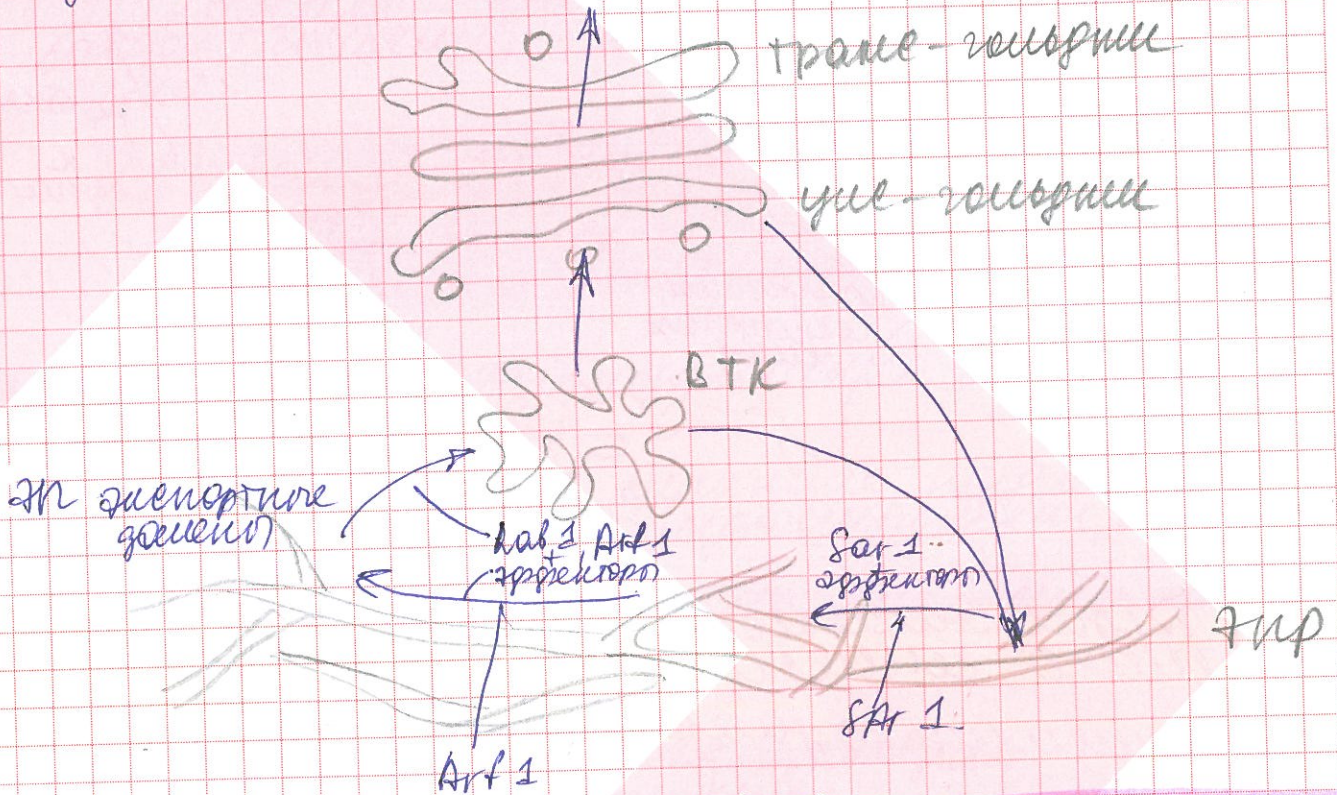 транс-гольджи
цис-гольджи
ВТК
ЭП экспортные
домены
Rab 1, Arf 1
+
эффекторы
Sar 1
+
эффекторы
ЭПР
SAr 1.
Arf 1